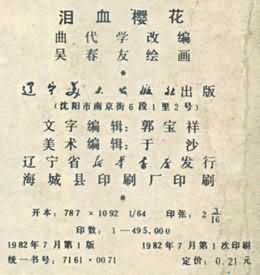 泪血樱花
曲代学改编
吴春友绘画
辽宁美术出版社出版
(沈阳市南京街6段1里2号)
文字编辑:郭宝祥
美术编辑:于沙
辽宁省新华书店发行
海城县印刷厂印刷
开本:787×1092 1/64 印张:2 3/16
印数:1—495,000
1982年7月第1版 1982年7月第1次印刷
统一书号:7161·0071 定价:0.21元